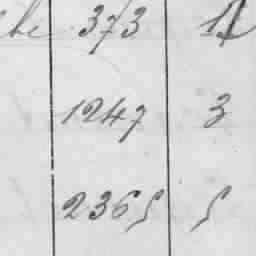 be 373 1
1247 3
2365 5